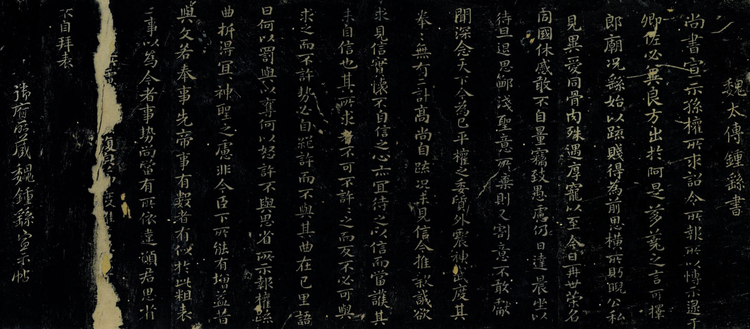 魏太傅鍾繇書
尚書宣示孫權所求詔令所報所以博示逮于
卿佐必冀良方出於阿是芻蕘之言可擇
郎廟況繇始以疏賤得為前恩橫所盼睨公私
見異愛同骨肉殊遇厚寵以至今日再世榮名
同國休慼敢不自量竊致愚慮仍日達晨坐以
待旦退思鄙淺聖意所棄則又割意不敢獻
聞深念天下今為已平權之委質外震神武度其
拳〻無有二計高尚自疏況未見信今推款誠欲
求見信實懷不自信之心亦宜待之以信而當護其
未自信也其所求者不可不許〻之而反不必可與
求之而不許勢必自絕許而不與其曲在己里語
曰何以罰與以奪何以怒許不與思省所示報權疏
曲折得宜〻神聖之慮非今臣下所能有增益昔
與文若奉事先帝事有數者有似於此粗表
二事以為今者事勢尚當有所依違願君思省
復
不自拜表
藏魏鍾繇宣示帖